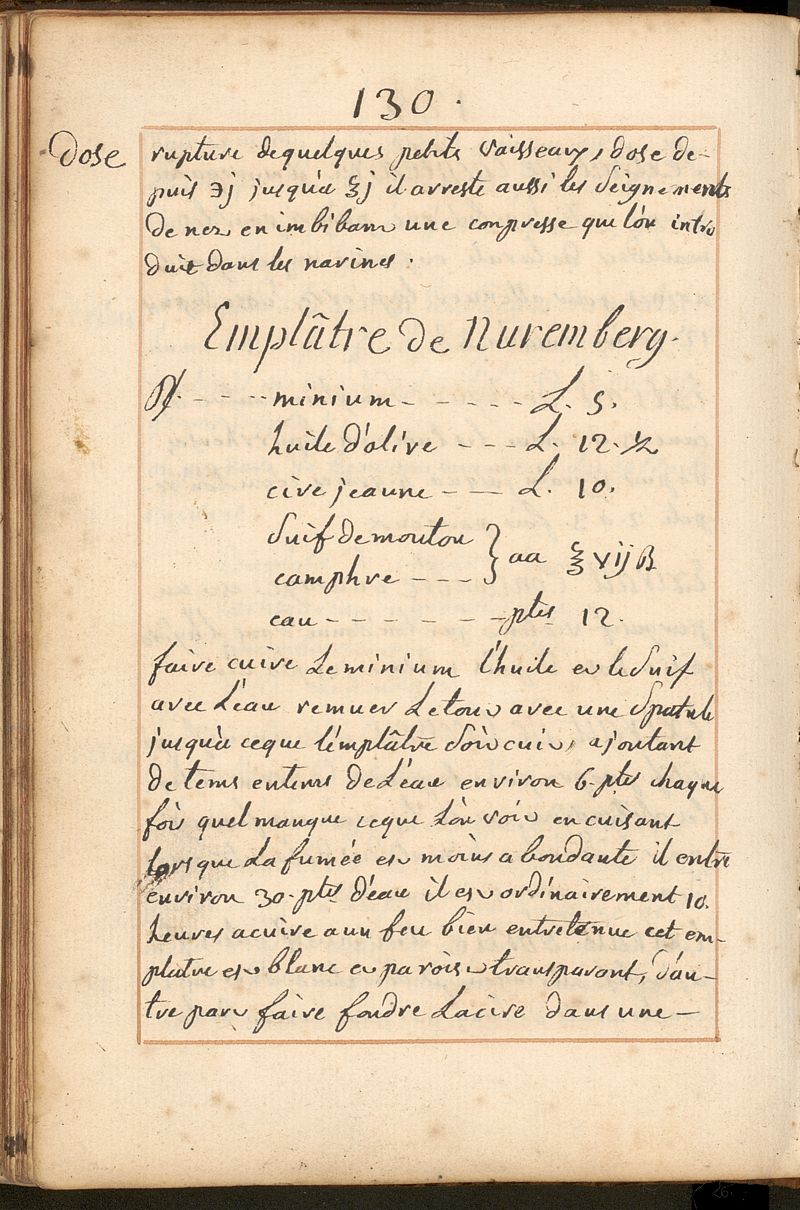 130.
Dose
rupture de quelques petits vaisseaux, dose de-
puis ℈j jusqu'à ℥j il arreste aussi les Seignements
De nez en imbibant une compresse que l'on intro
duit dans les narines.
Emplâtre de Nuremberg.
℞. - - - - minium - - - - - L. 5.
huile d'olive - - - L. 12. ½
cire jeaune - - - L. 10.
Suif de mouton
camphre - - - } aa ℥ vij ß
eau - - - - - - ptes 12.
faire cuire Le minium l'huile et le Suif
avec L'eau remuer Le tout avec une Spatule
jusqu'à ce que l'emplâtre Soit cuit, ajoutant
De tems en tems De L'eau environ 6. ptes chaque
fois quel manque ce que L'on voit en cuisant
lorsque La fumée est moins abondante il entre
environ 30. ptes d'eau il est ordinairement 10.
heures a cuire a un feu bien entretenue cet em-
platre est blanc et paroist transparant, D'au-
tre part faire fondre La cire dans une -